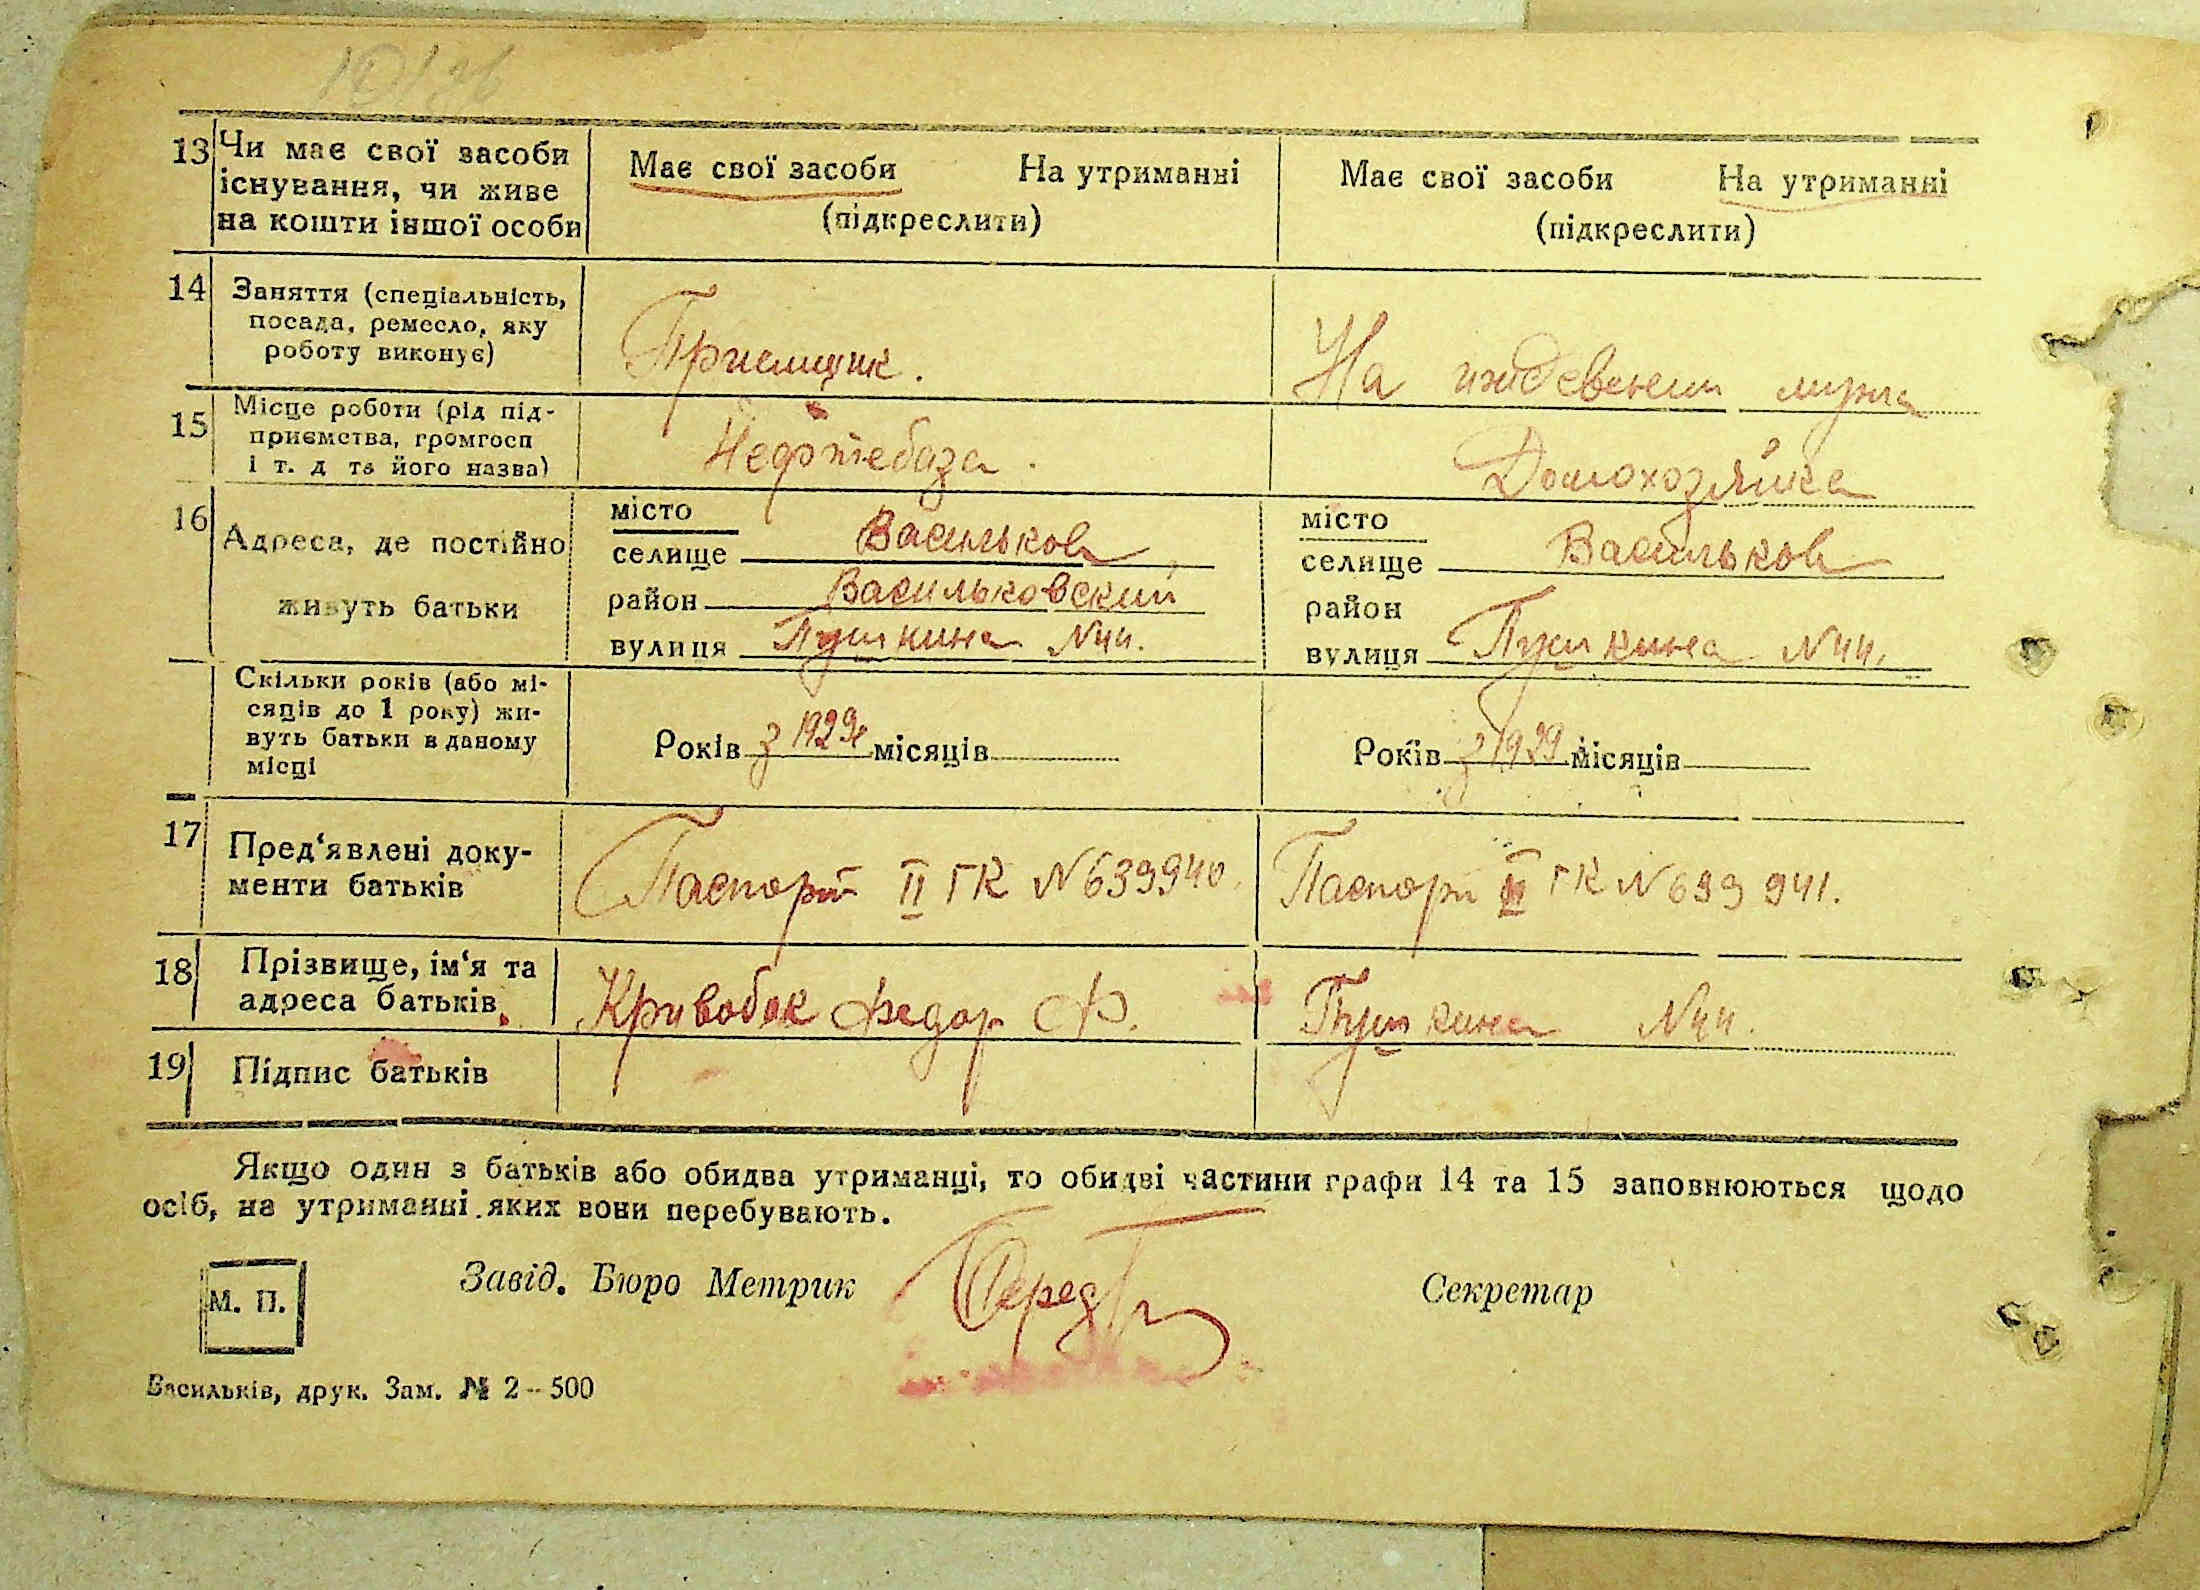 13 Чи має свої засоби існування, чи живе на кошти іншої особи
Має свої засоби На утриманні
(підкреслити)
Має свої засоби На утриманні
(підкреслити)
14 Заняття (спеціальність,
посада, ремесло, яку
роботу виконує)
Приемщик.
На иждевенеии мужа
15 Місце роботи (рід під-
приємства, громгосп
і т. д та його назва)
Нефтебаза.
Домохозяйка
16 Адреса, де постійно
живуть батьки
місто
селище Васильков
район Васильковский
вулиця Пушкина N44.
місто
селище Васильков
район
вулиця Пушкина N44.
Скільки років (або мі-
сяців до 1 року) жи-
вуть батьки в даному
місці
Років з 1929г місяців
Років з 1929 місяців
17 Пред‘явлені доку-
менти батьків
Паспорт II ГК N639940.
Паспорт II ГК N639941.
18 Прізвище, ім‘я та
адреса батьків
Кривобок Федор Ф.
Пушкина N44.
19 Підпис батьків
Якщо один з батьків або обидва утриманці, то обидві частини графи 14 та 15 заповнюються щодо
осіб, на утриманні яких вони перебувають.
М. П.
Завід. Бюро Метрик
Секретар
Васильків, друк. Зам. № 2 - 500